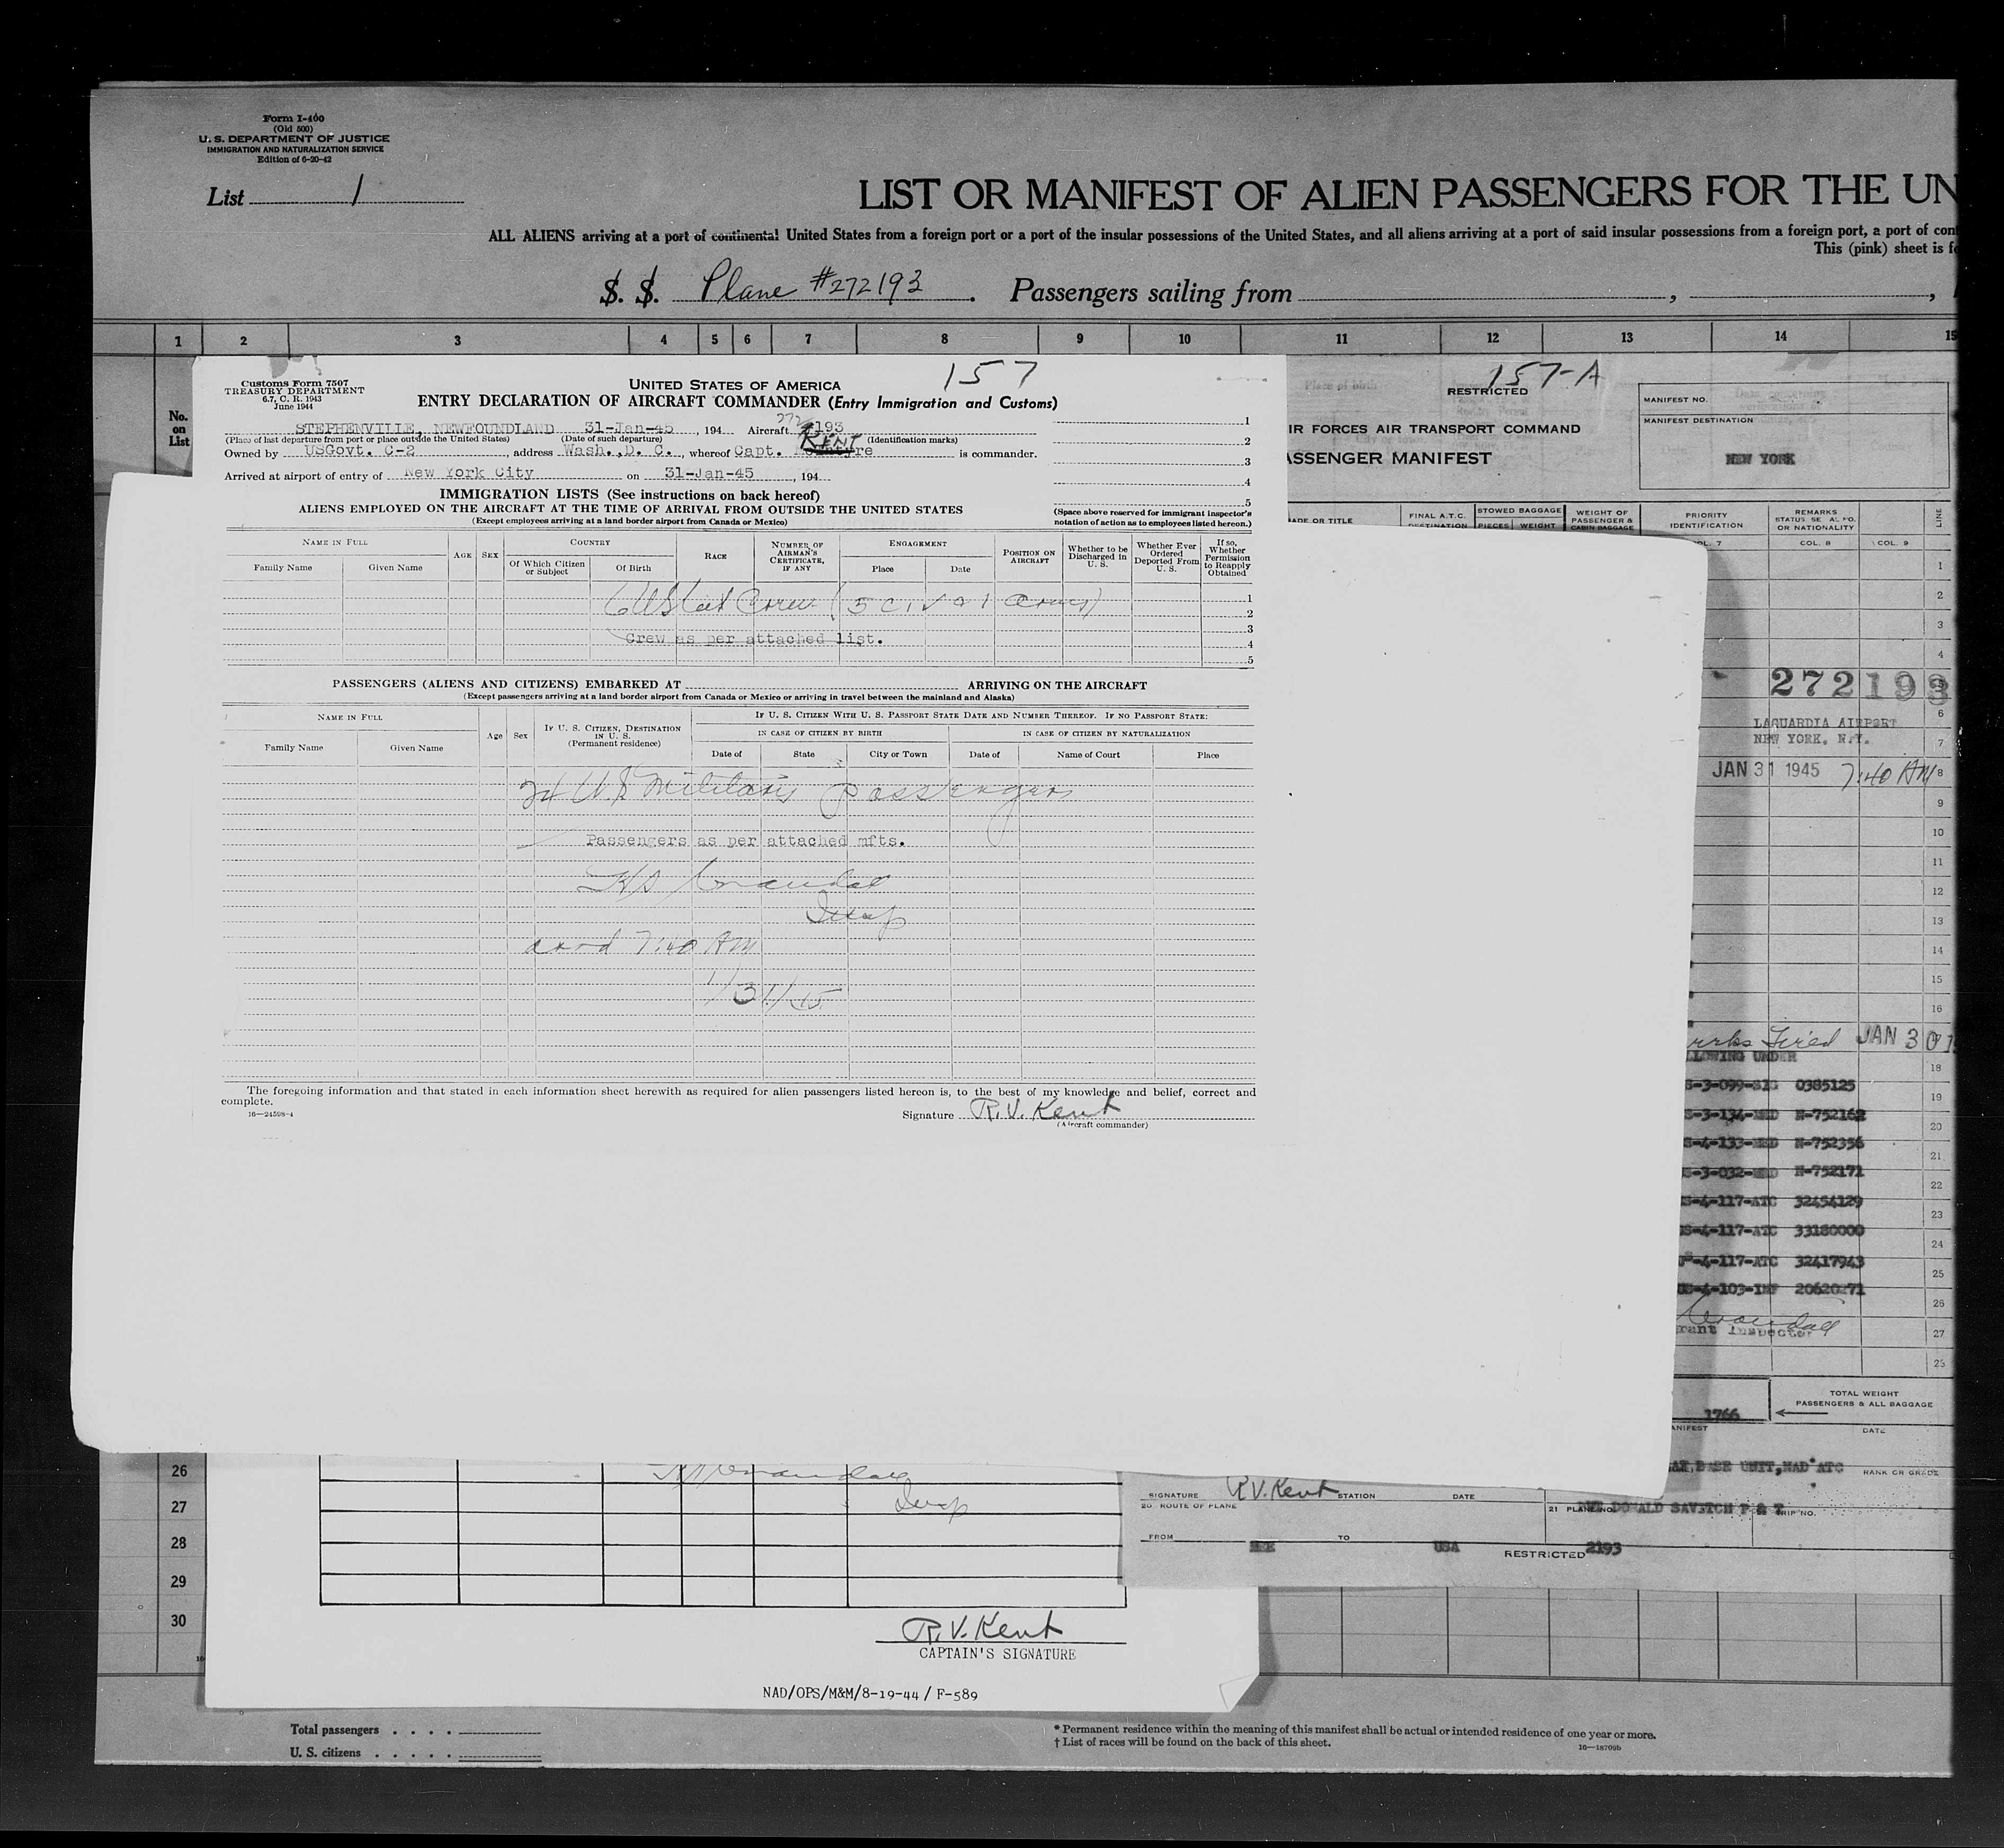 Form I-400
(Old 500)
U. S. DEPARTMENT OF JUSTICE
IMMIGRATION AND NATURALIZATION SERVICE
Edition of 6-20-42
List 1
LIST OR MANIFEST OF ALIEN PASSENGERS FOR THE UN
ALL ALIENS arriving at a port of continental United States from a foreign port or a port of the insular possessions of the United States, and all aliens arriving at a port of said insular possessions from a foreign port, a port of cont
This (pink) sheet is fo
S. S. Plane #272193. Passengers sailing from , ,
1 2 3 4 5 6 7 8 9 10 11 12 13 14 15
No. on List
157
Customs Form 7507
TREASURY DEPARTMENT
6.7, C. R. 1943
June 1944
UNITED STATES OF AMERICA
ENTRY DECLARATION OF AIRCRAFT COMMANDER (Entry Immigration and Customs)
STEPHENVILLE, NEWFOUNDLAND 31-Jan-45, 194 Aircraft 272193
(Place of last departure from port or place outside the United States) (Date of such departure) (Identification marks)
Owned by USGovt. C-2, address Wash., D. C., whereof Capt. KENT is commander.
Arrived at airport of entry of New York City on 31-Jan-45, 194
1
2
3
4
5
IMMIGRATION LISTS (See instructions on back hereof)
ALIENS EMPLOYED ON THE AIRCRAFT AT THE TIME OF ARRIVAL FROM OUTSIDE THE UNITED STATES
(Except employees arriving at a land border airport from Canada or Mexico)
(Space above reserved for immigrant inspector's
notation of action as to employees listed hereon.)
NAME IN FULL AGE SEX COUNTRY RACE NUMBER OF AIRMAN'S CERTIFICATE, IF ANY ENGAGEMENT POSITION ON AIRCRAFT Whether to be Discharged in U. S. Whether Ever Ordered Deported From U. S. If so, Whether Permission to Reapply Obtained
Family Name Given Name Of Which Citizen or Subject Of Birth Place Date
6 US Cit Crew (5 civ & 1 army)
1
2
3
Crew as per attached list.
4
5
PASSENGERS (ALIENS AND CITIZENS) EMBARKED AT ARRIVING ON THE AIRCRAFT
(Except passengers arriving at a land border airport from Canada or Mexico or arriving in travel between the mainland and Alaska)
NAME IN FULL Age Sex IF U. S. CITIZEN, DESTINATION IN U. S. (Permanent residence) IF U. S. CITIZEN WITH U. S. PASSPORT STATE DATE AND NUMBER THEREOF. IF NO PASSPORT STATE:
IN CASE OF CITIZEN BY BIRTH IN CASE OF CITIZEN BY NATURALIZATION
Family Name Given Name Date of State City or Town Date of Name of Court Place
24 US Military Passengers
Passengers as per attached mfts.
Crandall
Insp
arrd 7:40 AM
1/31/45
The foregoing information and that stated in each information sheet herewith as required for alien passengers listed hereon is, to the best of my knowledge and belief, correct and
complete.
16—24598-4
Signature R.V. Kent
(Aircraft commander)
157-A
RESTRICTED
IR FORCES AIR TRANSPORT COMMAND
ASSENGER MANIFEST
MANIFEST NO.
MANIFEST DESTINATION
NEW YORK
ADE OR TITLE FINAL A.T.C. DESTINATION STOWED BAGGAGE PIECES WEIGHT WEIGHT OF PASSENGER & CABIN BAGGAGE PRIORITY IDENTIFICATION REMARKS OR NATIONALITY LINE
OL. 7 COL. 8 COL. 9
1
2
3
4
272193
6
LAGUARDIA AIRPORT
NEW YORK, N.Y.
7
JAN 31 1945 7:40 AM 8
9
10
11
12
13
14
15
16
JAN 30 1
LLOWING UNDER
18
S-3-099-SIG 0385125
19
S-3-134-MED N-752162
20
S-4-133-MED N-752356
21
S-3-032-MED N-752171
22
S-4-117-ATC 32454129
23
S-4-117-ATC 33180000
24
S-4-117-ATC 32417943
25
S-4-103-INF 20620271
26
Crandall
rant Inspector
27
28
TOTAL WEIGHT
PASSENGERS & ALL BAGGAGE
1766
ANIFEST DATE
BASE UNIT, NAD ATC RANK OR GRADE
SIGNATURE R.V. Kent STATION DATE
20 ROUTE OF PLANE 21 PLANE NO. DONALD SAVETCH P & T TRIP NO.
FROM TO USA 2193
RESTRICTED
26
27
28
29
30
Crandall
Insp
R.V. Kent
CAPTAIN'S SIGNATURE
NAD/OPS/M&M/8-19-44 / F-589
Total passengers . . . .
U. S. citizens . . . . .
* Permanent residence within the meaning of this manifest shall be actual or intended residence of one year or more.
† List of races will be found on the back of this sheet.
16—18709b